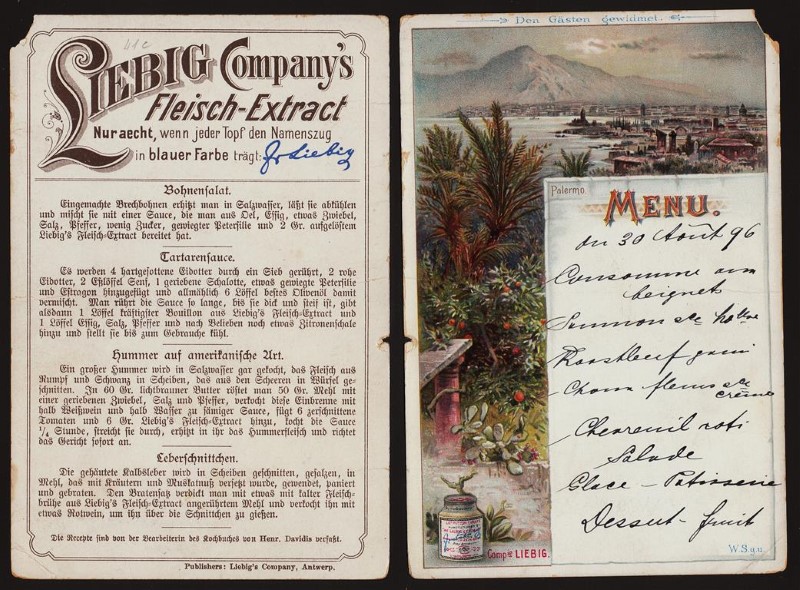 LIEBIG Company's
Fleisch-Extract
Nur aecht, wenn jeder Topf den Namenszug
in blauer Farbe trägt: J v Liebig
Bohnensalat.
Eingemachte Brechbohnen erhitzt man in Salzwasser, läßt sie abkühlen
und mischt sie mit einer Sauce, die man aus Oel, Essig, etwas Zwiebel,
Salz, Pfeffer, wenig Zucker, gewiegter Petersilie und 2 Gr. aufgelöstem
Liebig's Fleisch-Extract bereitet hat.
Tartarensauce.
Es werden 4 hartgesottene Eidotter durch ein Sieb gerührt, 2 rohe
Eidotter, 2 Eßlöffel Senf, 1 geriebene Schalotte, etwas gewiegte Petersilie
und Estragon hinzugefügt und allmählich 6 Löffel bestes Olivenöl damit
vermischt. Man rührt die Sauce so lange, bis sie dick und steif ist, gibt
alsdann 1 Löffel kräftigster Bouillon aus Liebig's Fleisch-Extract und
1 Löffel Essig, Salz, Pfeffer und nach Belieben noch etwas Zitronenschale
hinzu und stellt sie bis zum Gebrauche kühl.
Hummer auf amerikanische Art.
Ein großer Hummer wird in Salzwasser gar gekocht, das Fleisch aus
Rumpf und Schwanz in Scheiben, das aus den Scheeren in Würfel ge-
schnitten. In 60 Gr. lichtbrauner Butter röstet man 50 Gr. Mehl mit
einer geriebenen Zwiebel, Salz und Pfeffer, verkocht diese Einbrenne mit
halb Weißwein und halb Wasser zu sämiger Sauce, fügt 6 zerschnittene
Tomaten und 6 Gr. Liebig's Fleisch-Extract hinzu, kocht die Sauce
¼ Stunde, streicht sie durch, erhitzt in ihr das Hummerfleisch und richtet
das Gericht sofort an.
Leberschnittchen.
Die gehäutete Kalbsleber wird in Scheiben geschnitten, gesalzen, in
Mehl, das mit Kräutern und Muskatnuß versetzt wurde, gewendet, paniert
und gebraten. Den Bratensatz verdickt man mit etwas mit kalter Fleisch-
brühe aus Liebig's Fleisch-Extract angerührtem Mehl und verkocht ihn mit
etwas Rotwein, um ihn über die Schnittchen zu gießen.
Die Recepte sind von der Bearbeiterin des Kochbuches von Henr. Davidis verfaßt.
Publishers: Liebig's Company, Antwerp.
Den Gästen gewidmet.
Palermo
MENU.
du 30 Août 96
Consommé aux
beignets
Saumon sce
Roastbeef garni
Choux fleurs sce
crème
Chevreuil roti
Salade
Glace - Patisserie
Dessert - fruit
Compie LIEBIG.
W.S.g.u.